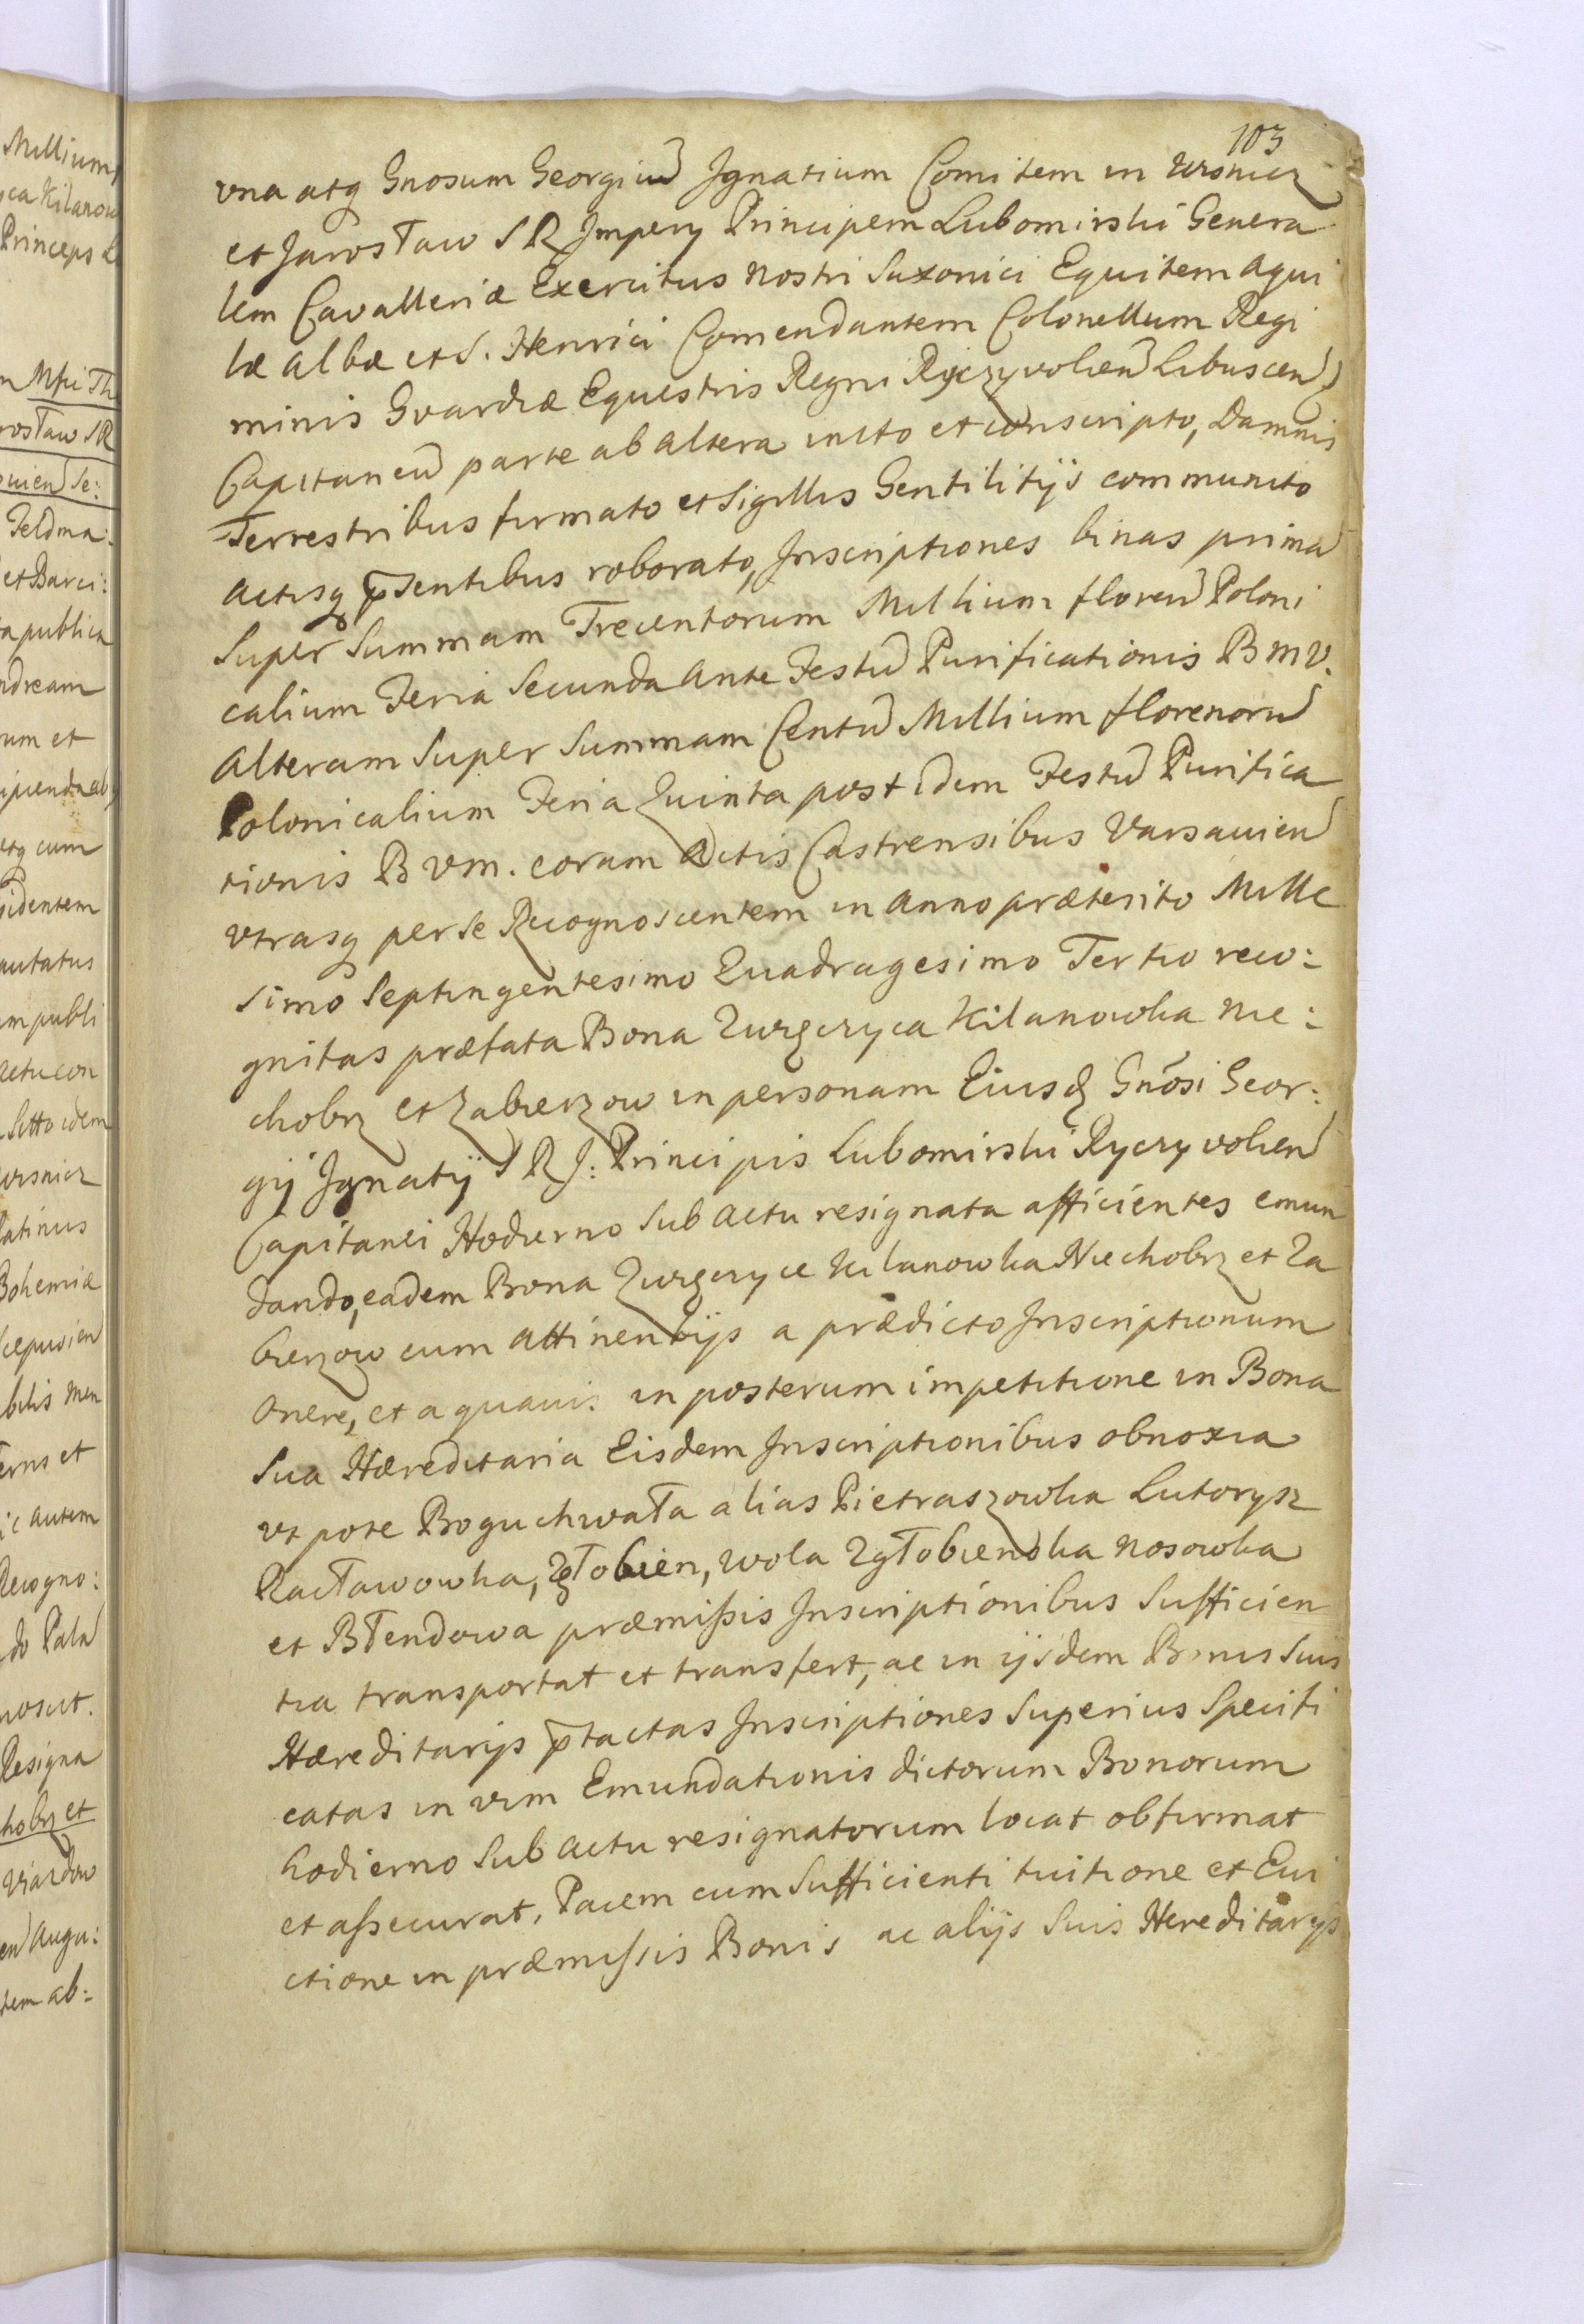 103
vna atq Gnosum Georgiu Jgnatium Comitem in Wisnicz
et Jarosław S R Jmpery Principem Lubomirski Genera
lem Cavalleriæ Exercitus nostri Saxonici Equitem Aqui
læ albæ et S. Henrici Comendantem Colonellum Regi
minis Gvardiæ Equestris Regni Ryczyvolien Libuscen
Capitaneu parte ab altera inito et conscripto, Damnis
Terrestribus firmato et Sigillis Gentilitijs communito
actisq pntibus roborato, Jnscriptiones binas prima
Super Summam Trecentorum Millium floren Poloni
calium Feria Secunda Ante Festu Purificationis B M V.
Alteram Super Summam Centu Millium florenoru
Polonicalium Feria Quinta post idem Festu Purifica
tionis B V M. coram Actis Castrensibus Varsavien
vtrasq per Se Recognoscentem in Anno præterito Mille
simo Septingentesimo Quadragesimo Tertio reco:
gnitas præfata Bona Zwręczyca Kilanowka Nie:
chobrz et Zabierzow in personam Eiusd Gnosi Geor:
gij Jgnatij S R J: Principis Lubomirski Ryczyvolien
Capitanei Hodierno Sub Actu resignata afficientes emun
dando, eadem Bona Zwręczyce Kilanowka Niechobrz et Za
bierzow cum attinentijs a prædicto Jnscriptionum
Onere, et a quavis in posterum impetitione in Bona
Sua Hæreditaria Eisdem Jnscriptionibus obnoxia
vt pote Boguchwała alias Pietraszowka Lutorysz
Racławowka, Zgłobien, Wola Zgłobienska Nosowka
et Błendowa præmissis Jnscriptionibus Sufficien
tia transportat et transfert, ac in ijsdem Bonis Suis
Hæreditarijs ptactas Jnscriptiones Superius Specifi
catas in vim Emundationis dictorum Bonorum
hodierno Sub Actu resignatorum locat obfirmat
et assecurat. Pacem cum Sufficienti tuitione et Evi
ctione in præmissis Bonis ac alijs Suis Hereditarijs